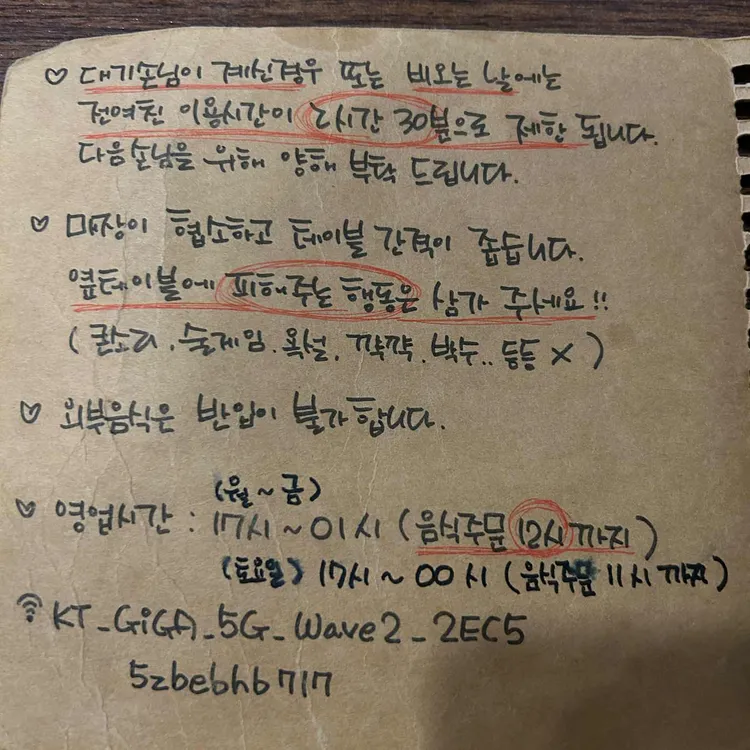 ♡ 대기손님이 계신경우 또는 비오는 날에는
전여친 이용시간이 2시간 30분으로 제한 됩니다.
다음손님을 위해 양해 부탁 드립니다.
♡ 매장이 협소하고 테이블 간격이 좁습니다.
옆테이블에 피해주는 행동은 삼가 주세요!!
( 큰소리. 술게임. 욕설. 꺅꺅. 박수.. 등등 X )
♡ 외부음식은 반입이 불가합니다.
(월~금)
♡ 영업시간 : 17시 ~ 01시 (음식주문 12시 까지)
(토요일) 17시 ~ 00시 (음식주문 11시 까지)
KT_GiGA_5G_Wave2_2EC5
5zbebhb717